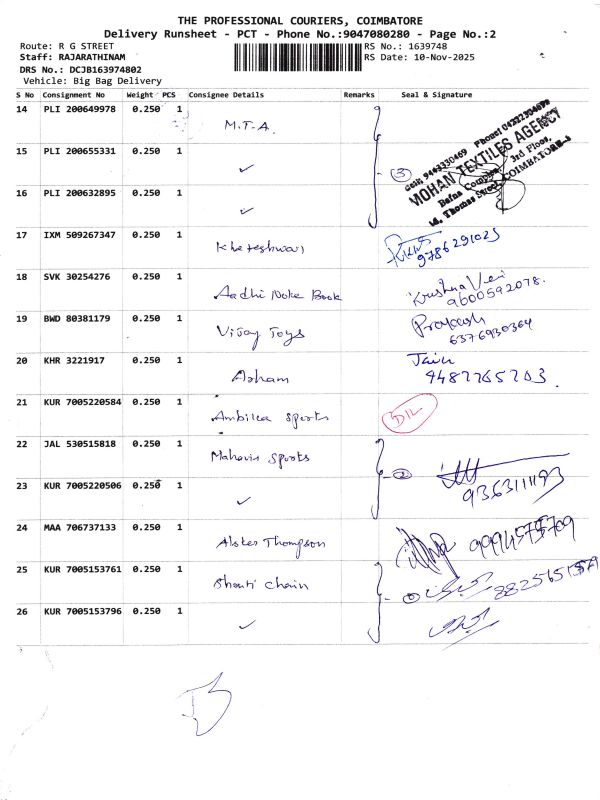 THE PROFESSIONAL COURIERS, COIMBATORE
Delivery Runsheet - PCT - Phone No.:9047080280 - Page No.:2
Route: R G STREET
RS No.: 1639748
Staff: RAJARATHINAM
RS Date: 10-Nov-2025
DRS No.: DCJB163974802
Vehicle: Big Bag Delivery
S No Consignment No Weight PCS Consignee Details Remarks Seal & Signature
14 PLI 200649978 0.250 1 M.T.A.
15 PLI 200655331 0.250 1 ✓
3
MOHAN TEXTILES AGENCY
3rd Floor,
16 PLI 200632895 0.250 1 ✓
17 IXM 509267347 0.250 1 Kheteshwari 9786291023
18 SVK 30254276 0.250 1 Aadhi Note Book Krishna Veni
9600592078.
19 BWD 80381179 0.250 1 Vijay Toys Prakash
6376930364
20 KHR 3221917 0.250 1 Arham
21 KUR 7005220584 0.250 1 Ambika sports
22 JAL 530515818 0.250 1 Mahavir sports
2
23 KUR 7005220506 0.250 1 ✓
24 MAA 706737133 0.250 1 Alster Thompson
25 KUR 7005153761 0.250 1 Shanti chain
26 KUR 7005153796 0.250 1 ✓